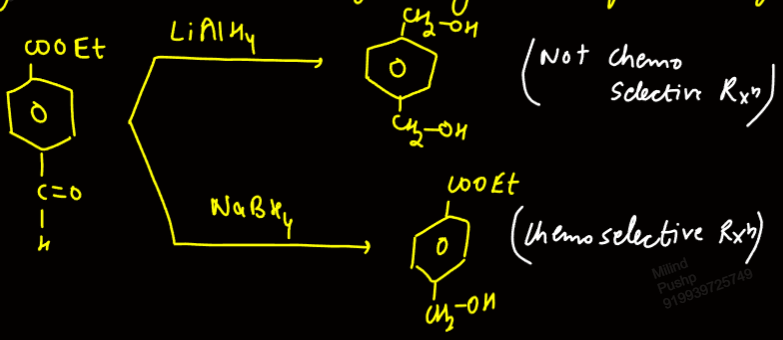 COOEt
C=O
H
LiAlH4
CH2-OH
CH2-OH
(Not chemo
selective Rxn)
NaBH4
COOEt
CH2-OH
(chemoselective Rxn)
Milind
Pushp
919939725749